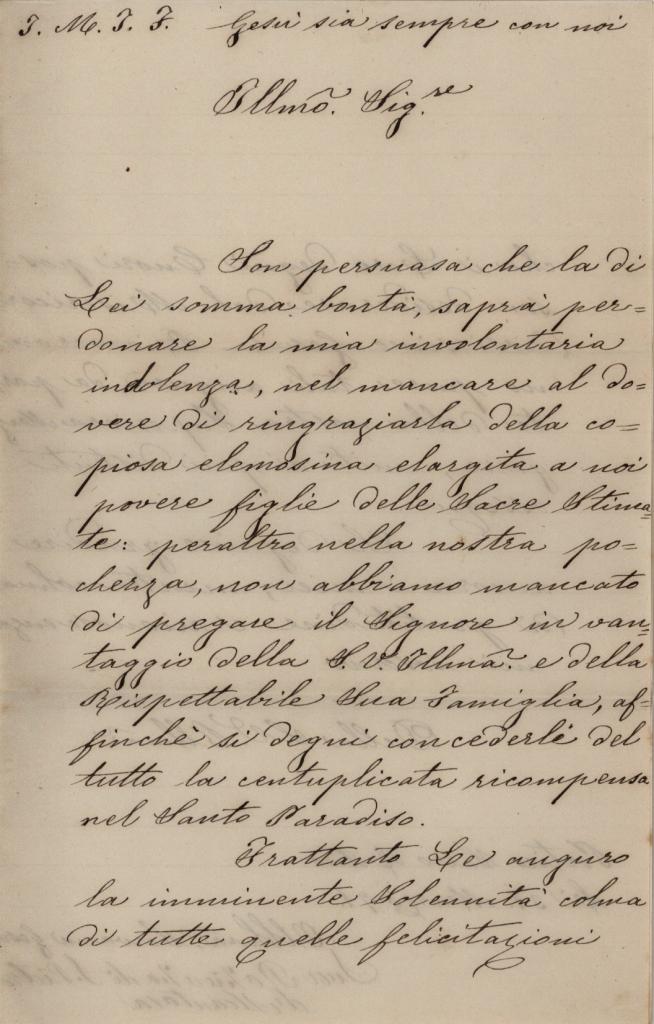 J. M. J. F. Gesù sia sempre con noi
Illmõ. Sig.re
Son persuasa che la di
Lei somma bontà, saprà per=
donare la mia involontaria
indolenza, nel mancare al do=
vere di ringraziarla della co=
piosa elemosina elargita a noi
povere figlie delle Sacre Stima=
te: peraltro nella nostra po=
chezza, non abbiamo mancato
di pregare il Signore in van=
taggio della S. V. Illmã. e della
Rispettabile Sua Famiglia, af=
finchè si degni concederle del
tutto la centuplicata ricompensa
nel Santo Paradiso.
Frattanto Le auguro
la imminente Solennità colma
di tutte quelle felicitazioni